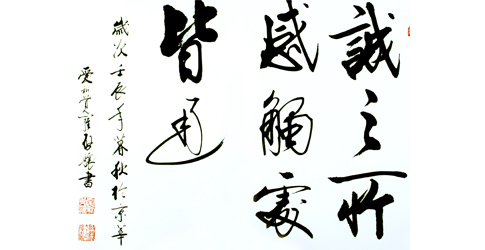 誠之所
感觸處
皆通
歲次壬辰年暮秋於京華
愛新覺羅啟驤書